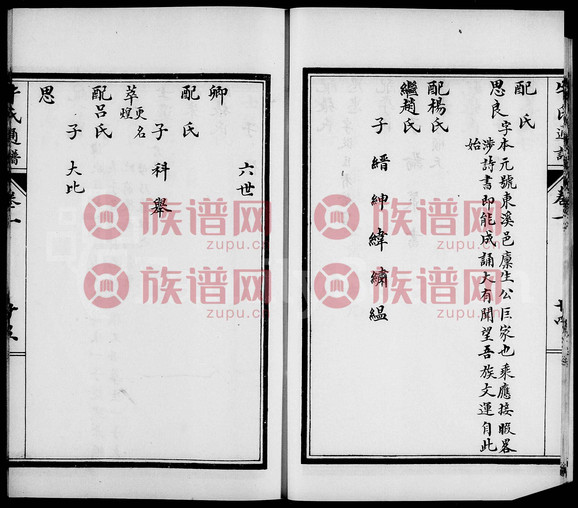 配氏
思良字本元號東溪邑廩生公巨家也乘應接暇畧
涉詩書即能成誦大有聞望吾族文運自此
始
配楊氏
繼趙氏
子 縉 紳 緯 繡 緼
六世
卿
配氏
子 科 舉
萃更名煌
配呂氏
子 大比
思
氏通譜
卷一
族谱网
zupu.cn
族谱网
zupu.cn
族谱网
zupu.cn
族谱网
zupu.cn
族谱网
zupu.cn
族谱网
zupu.cn